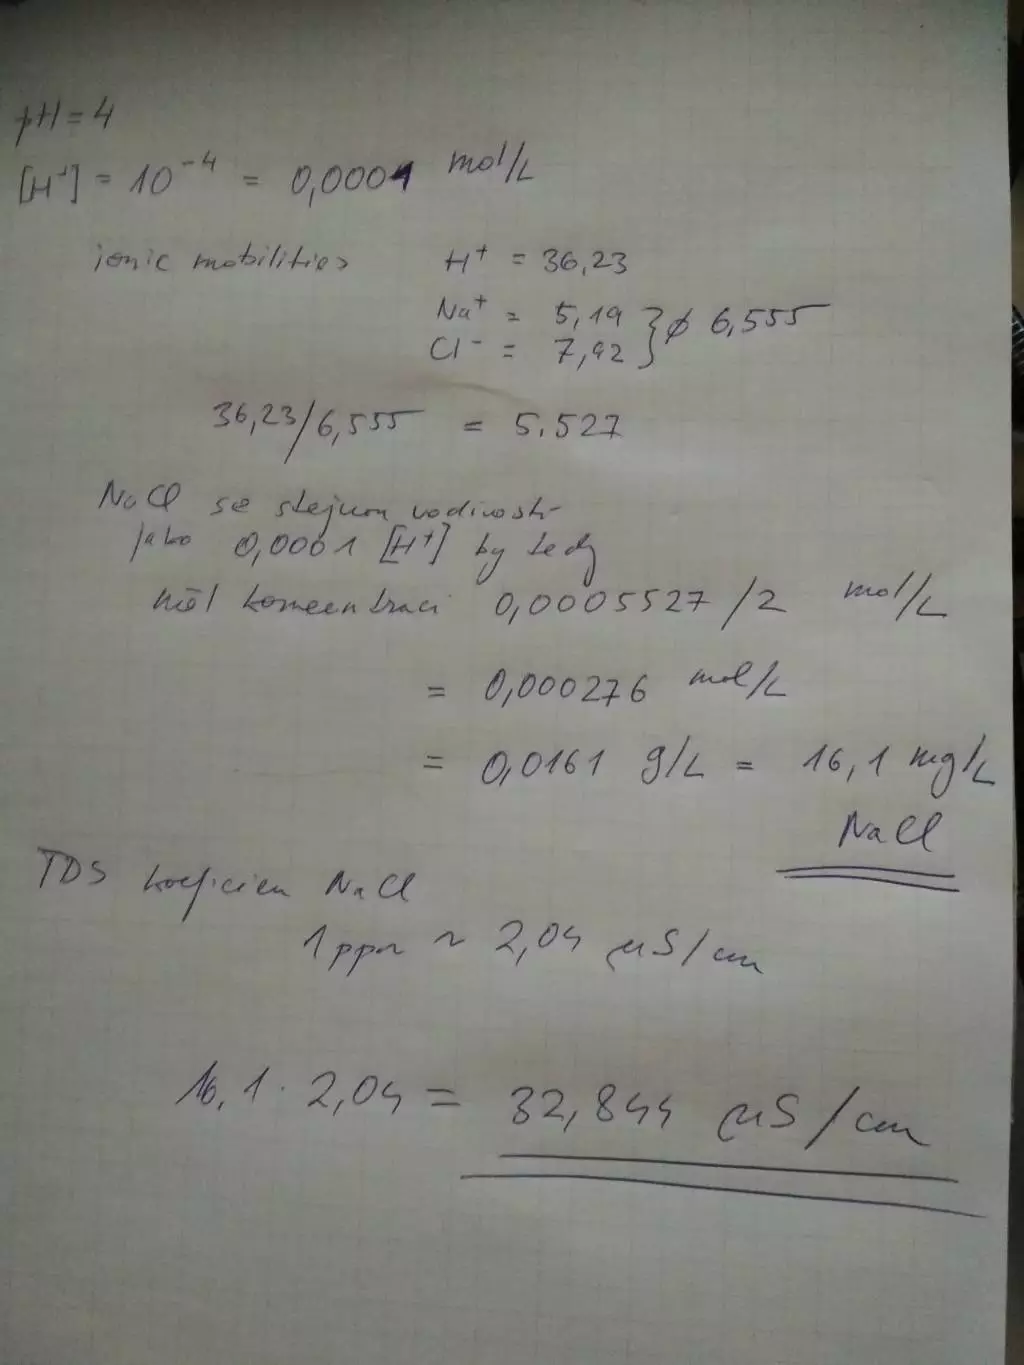 pH = 4
[H⁺] = 10⁻⁴ = 0,0001 mol/L
ionic mobilities H⁺ = 36,23
Na⁺ = 5,19 } ϕ 6,555
Cl⁻ = 7,92
36,23/6,555 = 5.527
NaCl se stejnou vodivostí
jako 0,0001 [H⁺] by tedy
měl koncentraci 0,0005527 /2 mol/L
= 0,000276 mol/L
= 0,0161 g/L = 16,1 mg/L
NaCl
TDS koeficien NaCl
1 ppm ~ 2,04 µS/cm
16,1 · 2,04 = 32,844 µS/cm